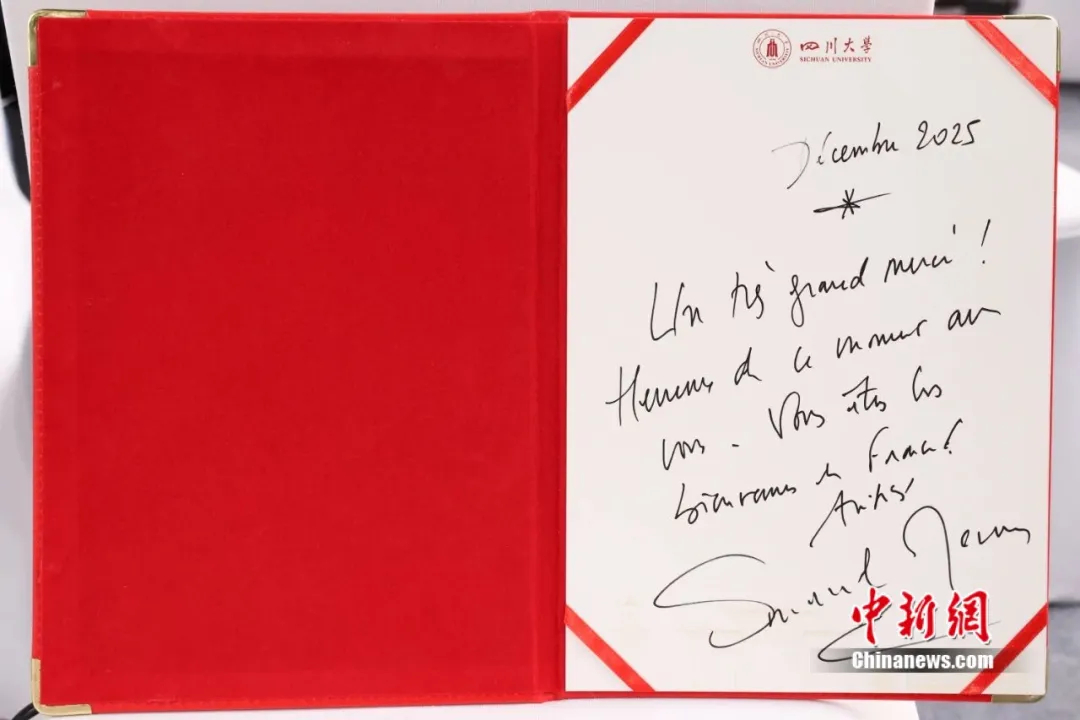 四川大學
SICHUAN UNIVERSITY
Décembre 2025
Un très grand merci !
Heureux de ce moment avec
vous. Vous êtes les
bienvenus en France !
Amitiés
中新網
Chinanews.com